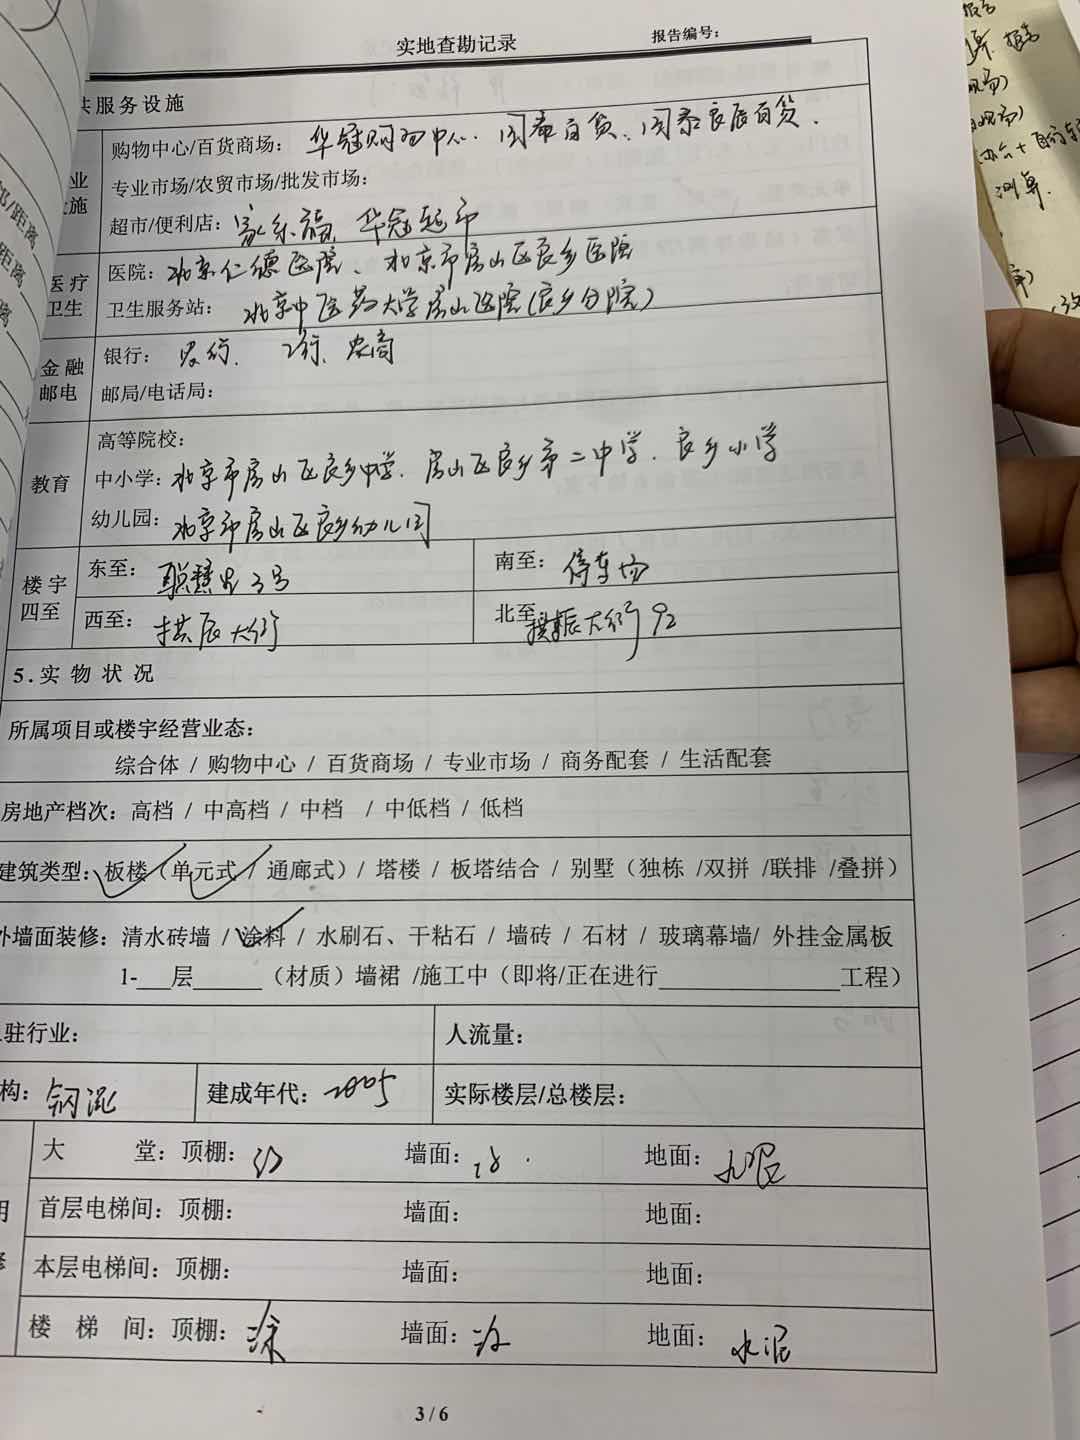 实地查勘记录 报告编号：
共服务设施
业 施
购物中心/百货商场： 华冠购物中心、国泰百货、国泰良辰百货、
专业市场/农贸市场/批发市场：
超市/便利店： 家乐福、华冠超市
医疗卫生
医院： 北京仁德医院、北京市房山区良乡医院
卫生服务站： 北京中医药大学房山医院(良乡分院)
金融邮电
银行： 农行、工行、农商
邮局/电话局：
教育
高等院校：
中小学： 北京市房山区良乡中学、房山区良乡第二中学、良乡小学
幼儿园： 北京市房山区良乡幼儿园
楼宇四至
东至： 3号 南至： 停车场
西至： 拱辰大街 北至： 拱辰大街92
5.实物状况
所属项目或楼宇经营业态：
综合体 / 购物中心 / 百货商场 / 专业市场 / 商务配套 / 生活配套
房地产档次：高档 / 中高档 / 中档 / 中低档 / 低档
建筑类型：板楼（单元式 / 通廊式）/ 塔楼 / 板塔结合 / 别墅（独栋 /双拼 /联排 /叠拼）
外墙面装修：清水砖墙 / 涂料 / 水刷石、干粘石 / 墙砖 / 石材 / 玻璃幕墙/ 外挂金属板
1-___层______（材质）墙裙 /施工中（即将/正在进行________________工程）
驻行业： 人流量：
构： 钢混 建成年代： 2005 实际楼层/总楼层：
大 堂：顶棚： 涂 墙面： 涂 地面： 水泥
首层电梯间：顶棚： 墙面： 地面：
本层电梯间：顶棚： 墙面： 地面：
楼 梯 间：顶棚： 涂 墙面： 涂 地面： 水泥
3 / 6